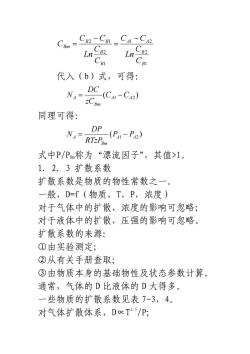 C_{Bm} = \frac{C_{B2} - C_{B1}}{Ln\frac{C_{B2}}{C_{B1}}} = \frac{C_{A1} - C_{A2}}{Ln\frac{C_{B2}}{C_{B1}}}
代入（b）式，可得：
N_A = \frac{DC}{zC_{Bm}}(C_{A1} - C_{A2})
同理可得：
N_A = \frac{DP}{RTzP_{Bm}}(P_{A1} - P_{A2})
式中P/P_{Bm}称为“漂流因子”，其值>1。
1．2．3 扩散系数
扩散系数是物质的物性常数之一。
一般，D=f（物质，T，P，浓度）
对于气体中的扩散，浓度的影响可忽略；
对于液体中的扩散，压强的影响可忽略。
扩散系数的来源：
①由实验测定；
②从有关手册查取；
③由物质本身的基础物性及状态参数计算。
通常，气体的 D 比液体的 D 大得多。
一些物质的扩散系数见表 7-3，4。
对气体扩散体系，D∝T^{1.5}/P;